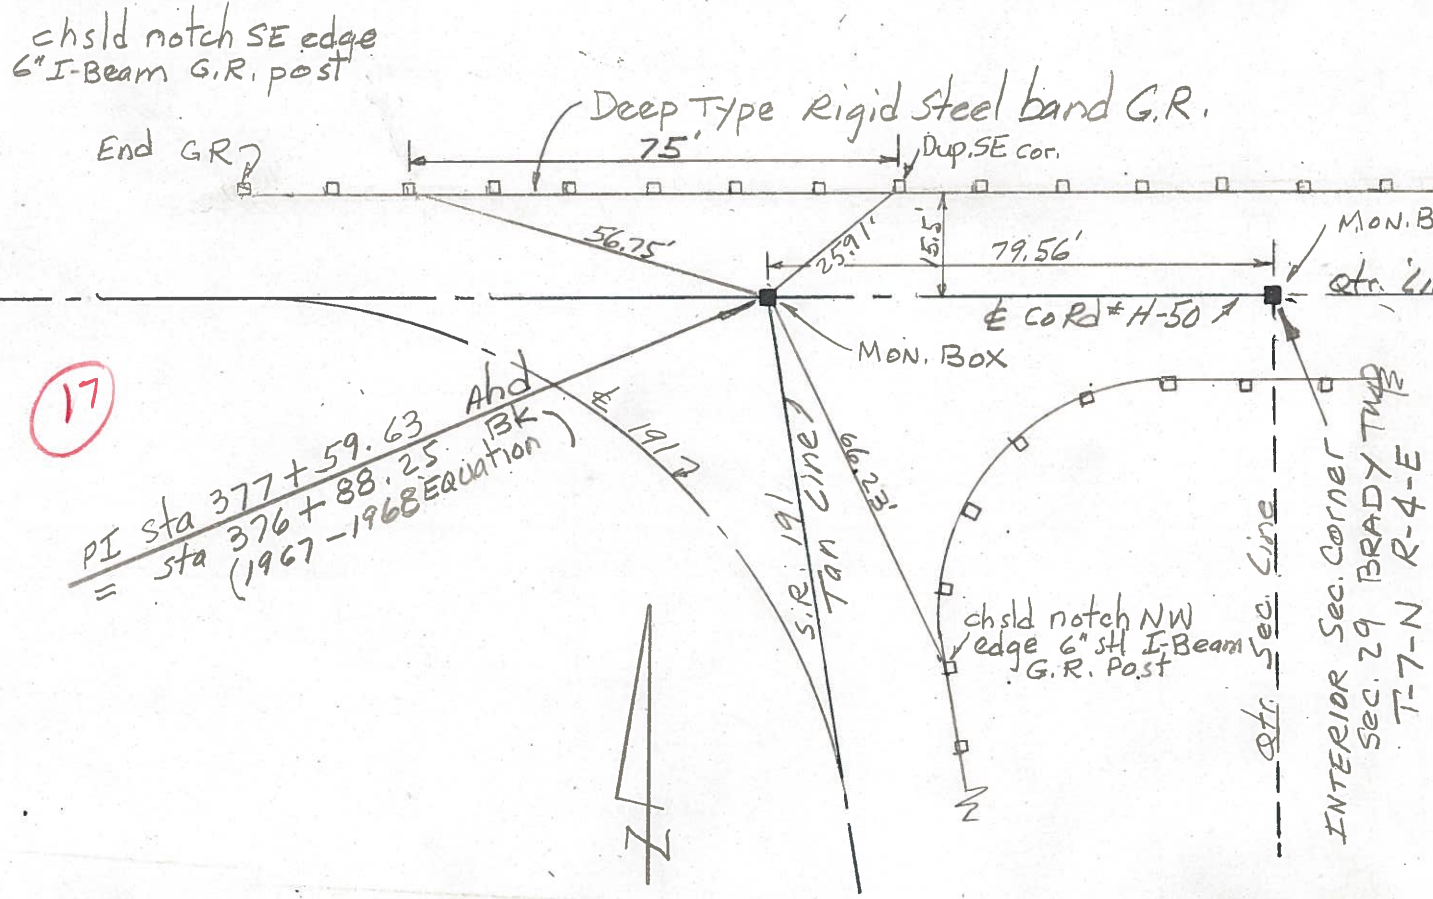 chsld notch SE edge
6" I-Beam G.R. post
Deep Type Rigid Steel band G.R.
End GR
75'
Dup. SE cor.
56.75'
25.91'
15.5'
79.56'
Mon. B
Qtr.
℄ Co Rd # H-50
Mon. Box
17
PI sta 377+59.63 Ahd
= sta 376+88.25 Bk
(1967-1968 Equation)
℄ 191
S.R. 191
Tan Line
66.23'
chsld notch NW
edge 6" stl I-Beam
G.R. Post
Qtr. Sec. Line
INTERIOR Sec. Corner
Sec. 29 BRADY TWP
T-7-N R-4-E
N